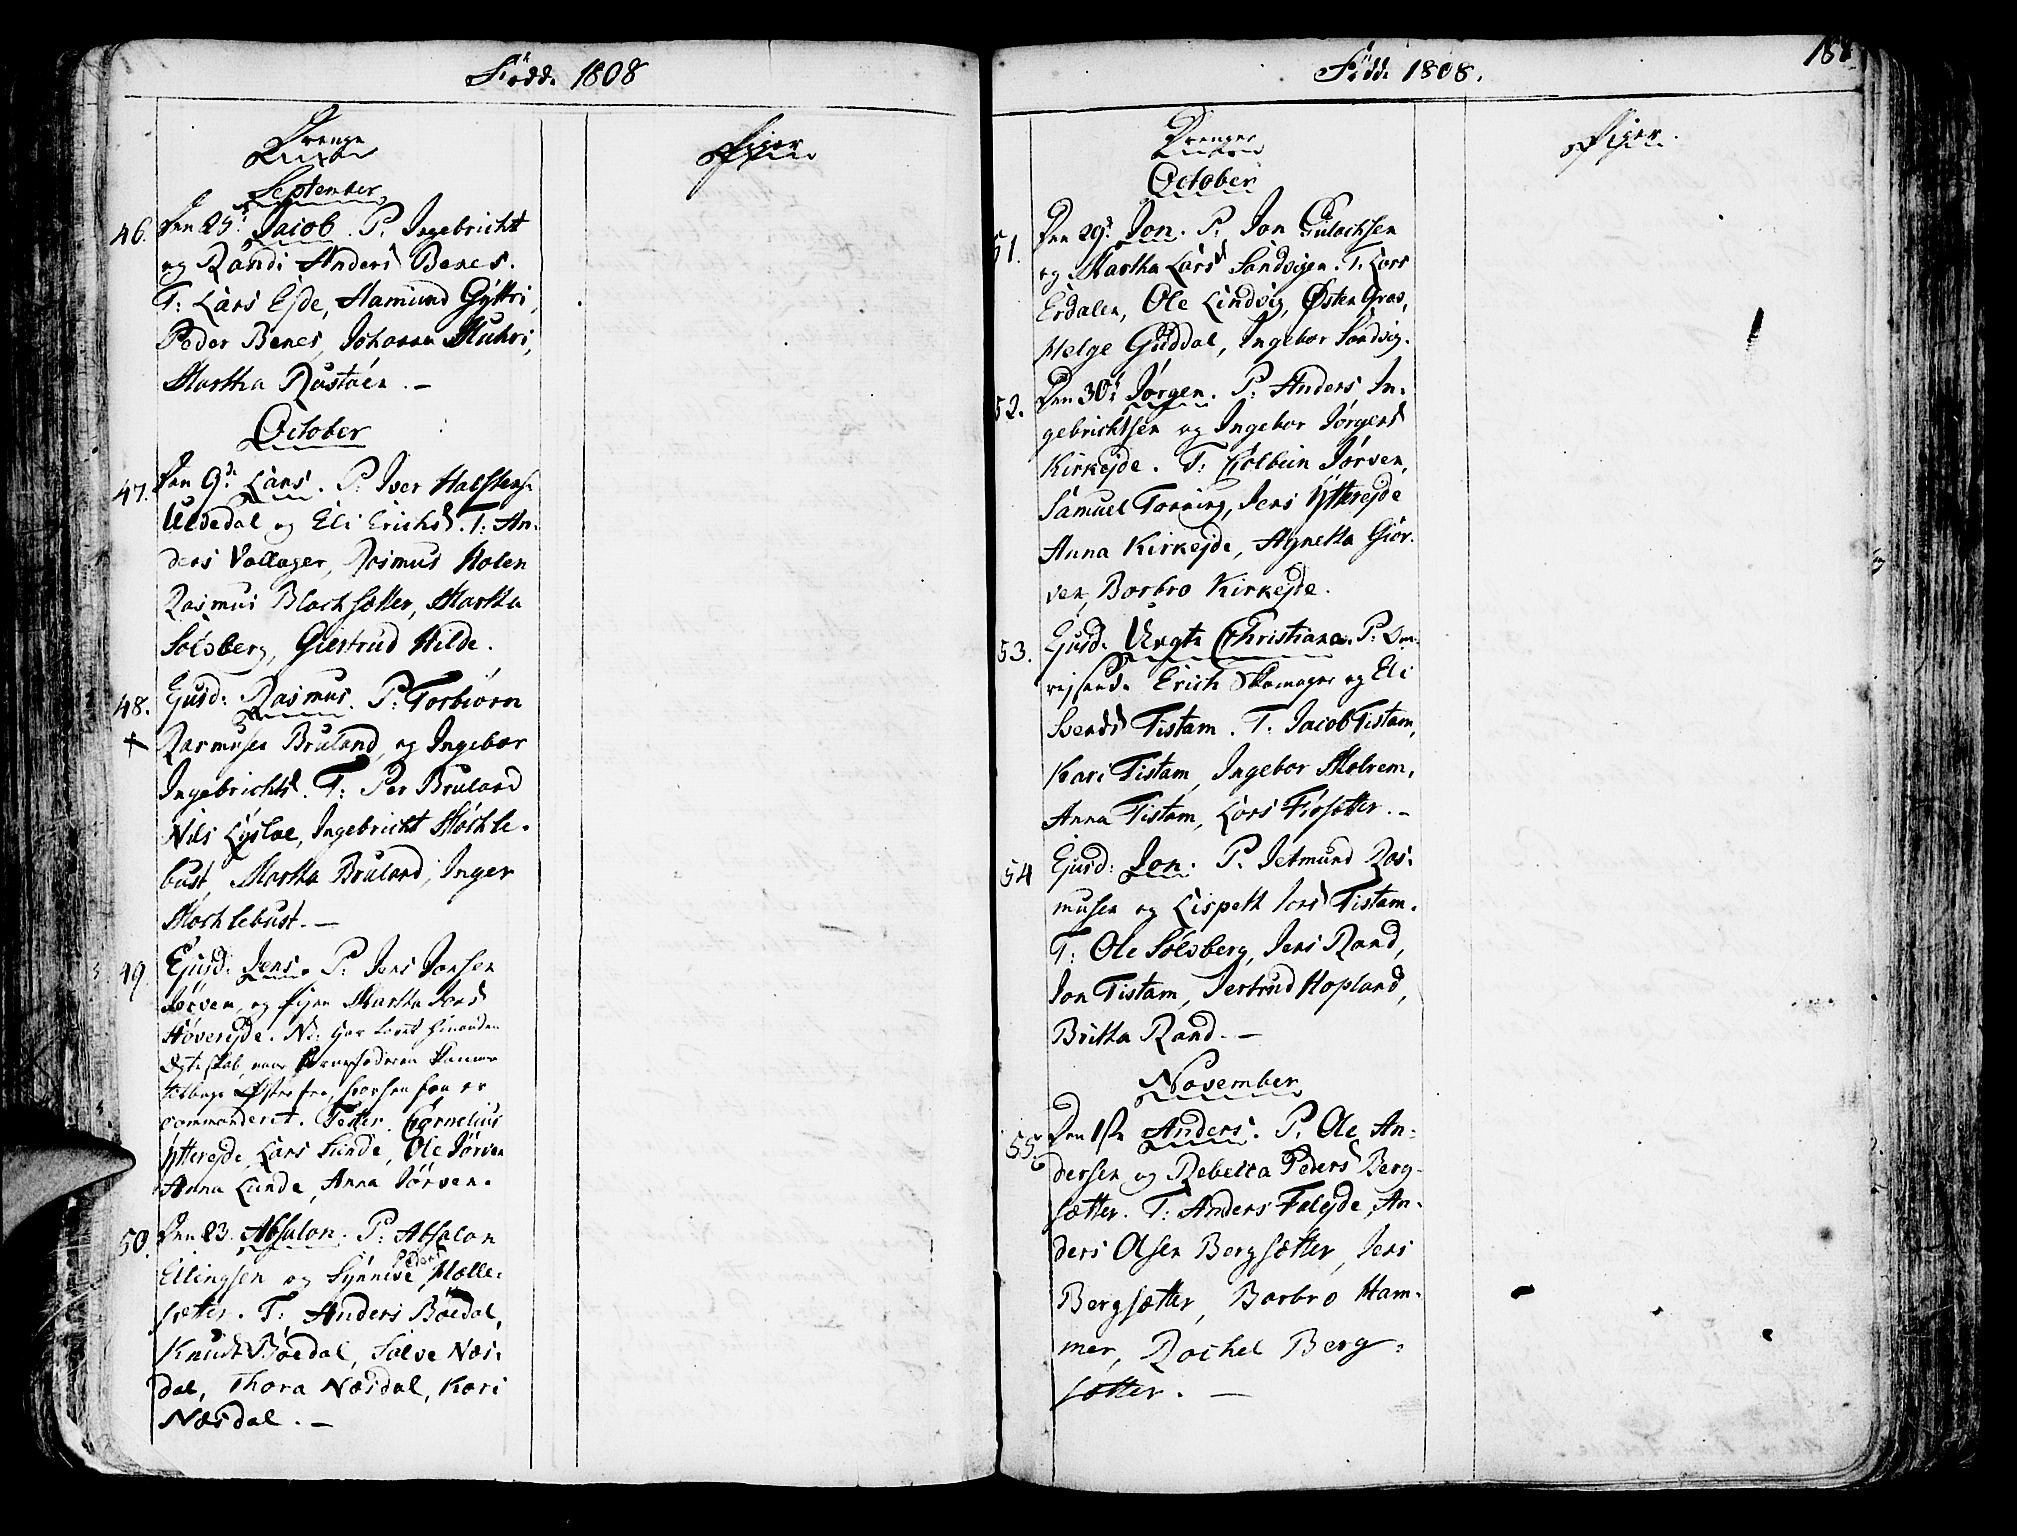 Födde 1808
Drenge
Piger
September
46. Den 25d Jacob. P. Ingebricht
og Randi Andersd Benes.
T: Lars Ejde, Hamund Gyttri,
Peder Benes, Johanna Muhri,
Martha Rustöen. -
October
47. Den 9de Lars. P: Iver Halstens.
Uldedal og Eli Erichsd. T: An-
ders Vallager, Rasmus Holen
Rasmus Blachsætter, Martha
Solsberg, Giertrud Hilde.
48. Ejusd: Rasmus. P: Torbiörn
Rasmusen Bruland og Ingebor
Ingebrichtsd. T: Per Bruland
Nils Lysloe, Ingebricht Mochle-
bust, Martha Bruland, Inger
Mochlebust. -
49. Ejusd: Jens. P: Jens Jonsen
Jörven og Pigen Martha Jensd
Höverejde. N: har lovet hinanden
Egteskab, naar Barnefaderen kommer
tilbage Østre fra, hvorhen han er
commanderet. Fetter. Cornelius
Ytterejde, Lars Sunde, Ole Jörven
Anna Lunde, Anna Jörven.
50. Den 23. Absalon. P: Absalon
Ellingsen og Synneve Pedersd Melle-
sætter. T: Anders Böedal,
Knud Böedal, Salve Næs-
dal, Thora Næsdal, Kari
Næsdal. -
Födde 1808.
188
Drenge
Piger.
October
51. Den 29d Jon. P. Jon Gulachsen
og Martha Larsd Sandvigen. T. Lars
Erdalen, Ole Lindvig, Østen Grov,
Helge Guddal, Ingebor Sandvig.
52. Den 30d Jörgen. P: Anders In-
gebrichtsen og Ingebor Jörgensd
Kirkejde. T: Colbein Jörven,
Samuel Torning, Jens Ytterejde
Anna Kirkejde, Agnetha Giör-
ven, Barbro Kirkejde.
53. Ejusd. Uægte Christiane. P:
rejsende Erich Skomager og Eli
Svendsd Tistam. T. Jacob Tistam,
Kari Tistam, Ingebor Molrem,
Anna Tistam, Lars Fiösætter. -
54 Ejusd: Jon. P. Jetmund Ras-
musen og Lispeth Jonsd Tistam.
T: Ole Solsberg, Jens Rand,
Jon Tistam, Jertrud Hopland,
Britha Rand. -
November
55. Den 1ste Anders. P. Ole An-
dersen og Rebecca Pedersd Berg-
sætter. T: Anders Falejde, An-
ders Olsen Bergsætter, Jens
Bergsætter, Barbro Ham-
mer, Rachel Berg-
sætter. -